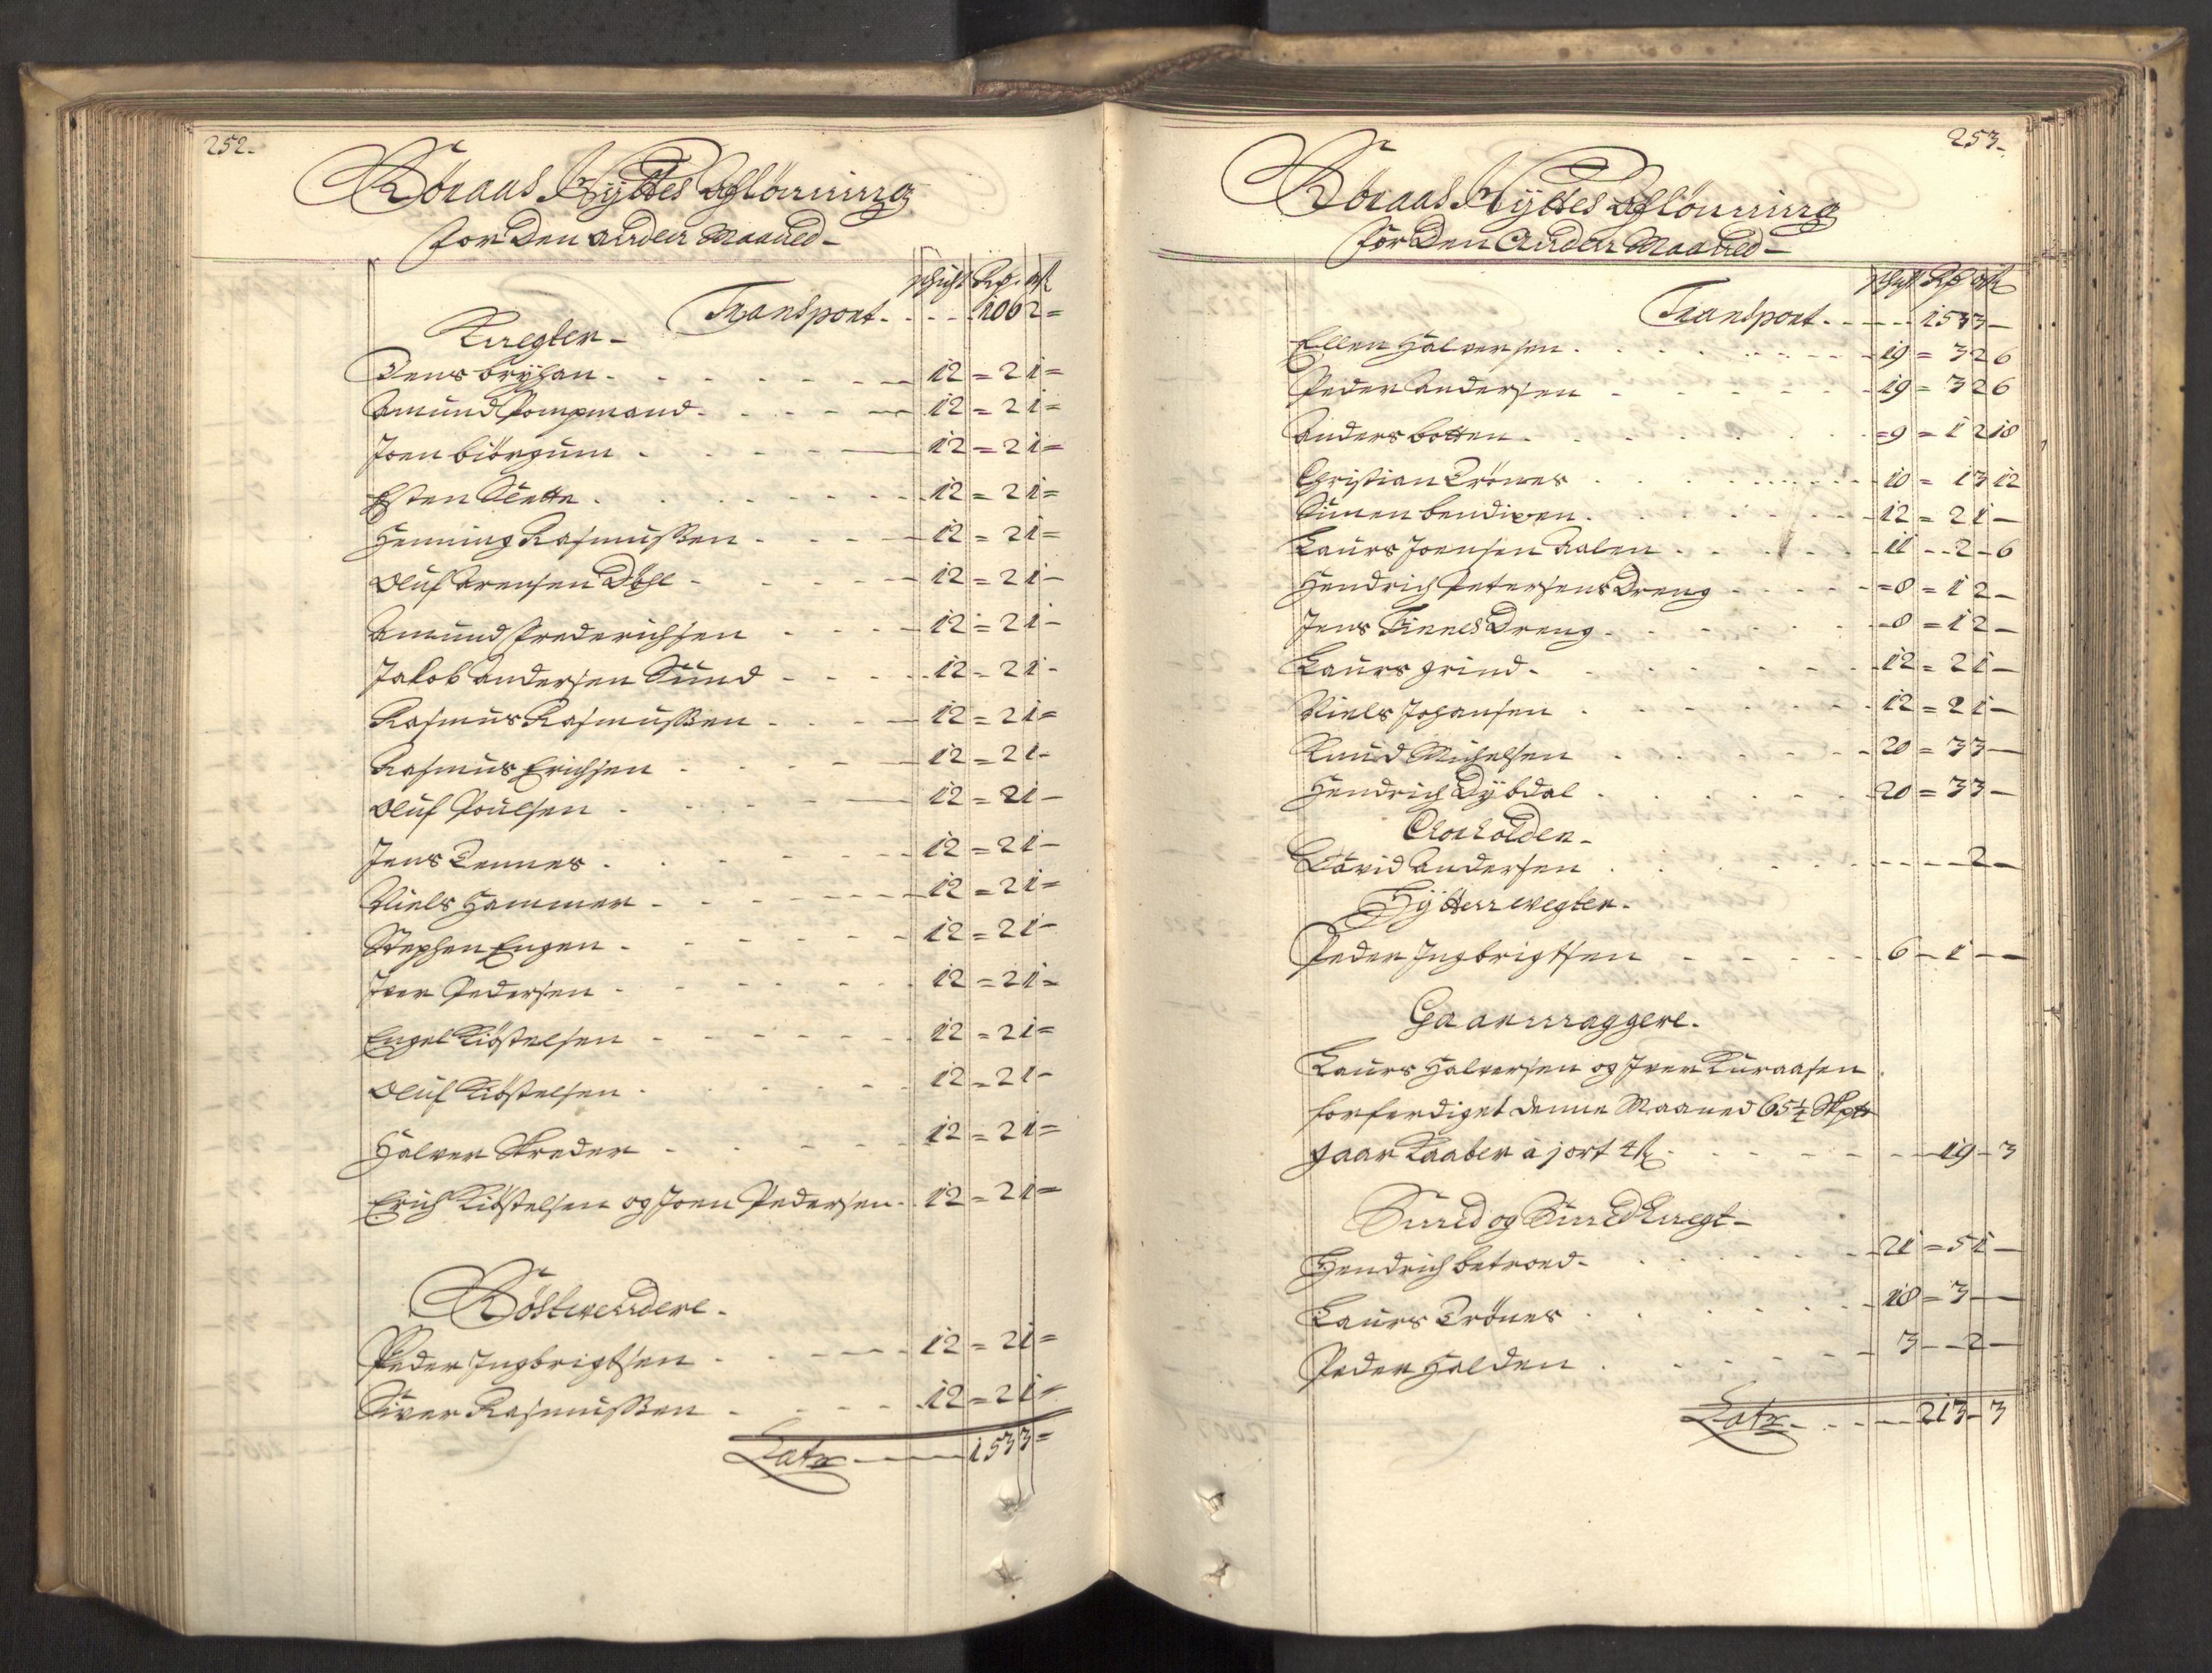 252.
Röraas Hyttes Afflönning
for Den anden Maaned
Schicht Rdr. ort ß
Transport - 106 2 =
Knegter
Jens bryhan - 12 = 2 1 =
Amund Pompmand - 12 = 2 1 =
Joen biörgum - 12 = 2 1 =
Esten - 12 = 2 1 =
Henning Rasmussen - 12 = 2 1 =
Oluf Arensen Döhl - 12 = 2 1 -
Amund Frederichsen - 12 = 2 1 -
Jakob Andersen Sund - 12 - 2 1 -
Rasmus Rasmussen - 12 = 2 1 =
Rasmus Erichsen - 12 = 2 1 -
Oluf Poulsen - 12 = 2 1 -
Jens Tennes - 12 = 2 1 -
Niels Hammer - 12 = 2 1 =
Stephen Engen - 12 = 2 1 -
Iver Pedersen - 12 = 2 1 =
Engel Kiöstelsen - 12 = 2 1 =
Oluf Kiöstelsen - 12 - 2 1 -
Halver Skreder - 12 = 2 1 =
Erich Kiöstelsen og Joen Pedersen - 12 = 2 1 =
Röstvendere
Peder Ingbrigtsen - 12 = 2 1 =
Siver Rasmussen - 12 = 2 1 =
Latr - 153 3 =
253.
Röraas Hyttes Afflönning
for Den Anden Maaned
Schicht Rdr ort ß
Transport - 153 3 -
Ellen Halversen - 19 = 3 2 6
Peder Andersen - 19 = 3 2 6
Anders botten - = 9 = 1 2 18
Christian Trönes - 10 = 1 3 12
Simen bendixen - 12 = 2 1 -
Laurs Joensen Aalen - 11 - - 2 - 6
Hendrich Petersens Dreng - = 8 = 1 2 -
Jens Finnes Dreng - 8 = 1 2 -
Laurs grind - 12 = 2 1 -
Niels Johansen - 12 = 2 1 -
Knud Michelsen - 20 = 3 3 -
Hendrich Dybdal - 20 = 3 3 -
David Andersen - 2 -
Hyttevegter
Peder Ingbrigtsen - 6 - 1 - -
Gaarmaggere
Laurs Halversen og Iver Kuraasen
forferdiget denne Maaned 65½ Skptr
gaar Kaaber à j ort 4 ß - 19 - 3
Smed og Smedknegt
Hendrich betroed - 21 = 5 1 -
Laurs Trönes - 18 = 3 - -
Peder Halden - 3 - - 2 -
Latr - 213 - 3